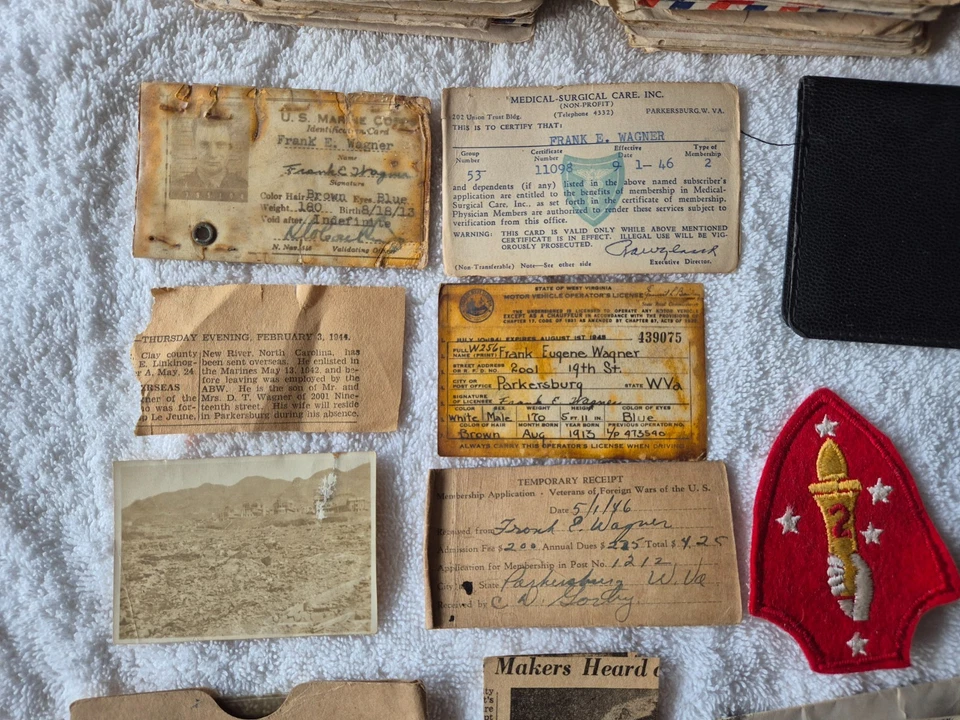 U.S. MARINE CORPS
Identification Card
Frank E. Wagner
Name
Frank E Wagner
Signature
Color Hair Brown Eyes Blue
Weight 180 Birth 8/18/13
Void after Indefinite
Validating Officer
MEDICAL-SURGICAL CARE, INC.
(NON-PROFIT)
202 Union Trust Bldg. (Telephone 4332) PARKERSBURG, W. VA.
THIS IS TO CERTIFY THAT:
FRANK E. WAGNER
Group Number Certificate Number Effective Date Type of Membership
53 11098 9-1-46 2
and dependents (if any) listed in the above named subscriber's
application are entitled to the benefits of membership in Medical-
Surgical Care, Inc., as set forth in the certificate of membership.
Physician Members are authorized to render these services subject to
verification from this office.
WARNING: THIS CARD IS VALID ONLY WHILE ABOVE MENTIONED
CERTIFICATE IS IN EFFECT. ILLEGAL USE WILL BE VIG-
OROUSLY PROSECUTED.
(Non Transferable) Note—See other side Executive Director.
THURSDAY EVENING, FEBRUARY 3, 1944.
Clay county
E. Linkinog-
A, May, 24
RSEAS
cner of the
no was for-
p Le Jeune,
New River, North Carolina, has
been sent overseas. He enlisted in
the Marines May 13, 1942, and be-
fore leaving was employed by the
ABW. He is the son of Mr. and
Mrs. D. T. Wagner of 2001 Nine-
teenth street. His wife will reside
in Parkersburg during his absence.
STATE OF WEST VIRGINIA
MOTOR VEHICLE OPERATOR'S LICENSE
THE UNDERSIGNED IS LICENSED TO OPERATE ANY MOTOR VEHICLE
EXCEPT AS A CHAUFFEUR IN ACCORDANCE WITH THE PROVISIONS
EXPIRES AUGUST 1ST 1948 439075
W256
FULL NAME (PRINT) Frank Eugene Wagner
STREET ADDRESS OR R. F. D. NO. 2001 19th St.
CITY OR POST OFFICE Parkersburg STATE W Va
SIGNATURE OF LICENSEE Frank E. Wagner
COLOR SEX WEIGHT HEIGHT COLOR OF EYES
White Male 170 5 FT. 11 IN Blue
COLOR OF HAIR MONTH BORN YEAR BORN PREVIOUS OPERATOR NO.
Brown Aug 1913
ALWAYS CARRY THIS OPERATOR'S LICENSE WHEN DRIVING
TEMPORARY RECEIPT
Membership Application - Veterans of Foreign Wars of the U. S.
Date 5/1/46
Received from Frank E. Wagner
Admission Fee $2.00 Annual Dues $2.25 Total $4.25
Application for Membership in Post No. 1212
City State Parkersburg W. Va
Received by
2
Makers Heard